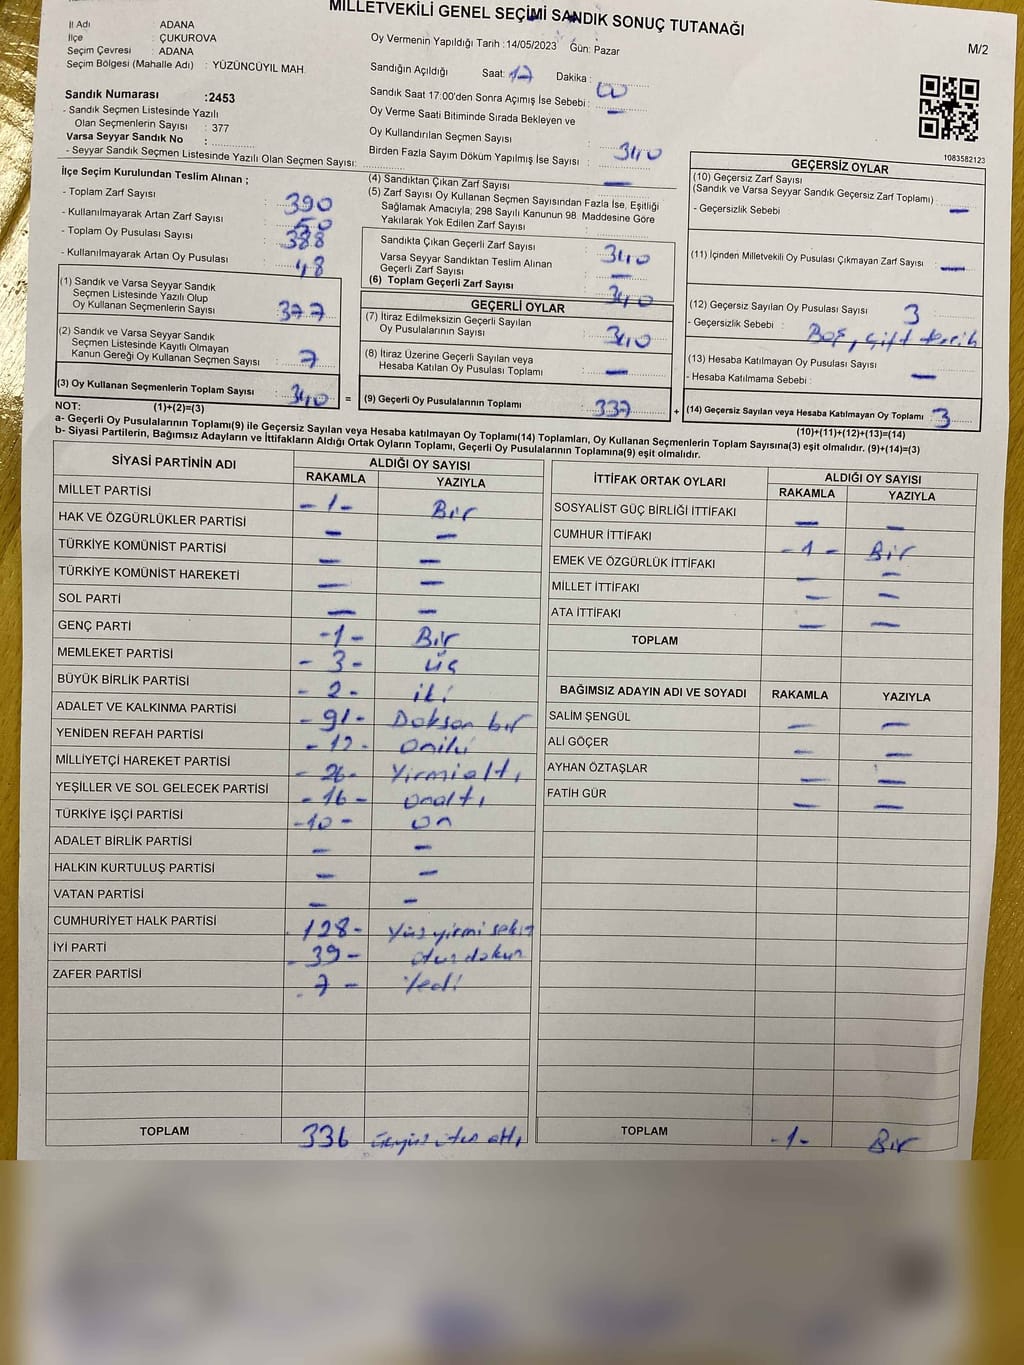 MİLLETVEKİLİ GENEL SEÇİMİ SANDIK SONUÇ TUTANAĞI
M/2
İl Adı : ADANA
İlçe : ÇUKUROVA
Seçim Çevresi : ADANA
Seçim Bölgesi (Mahalle Adı) : YÜZÜNCÜYIL MAH.
Sandık Numarası :2453
- Sandık Seçmen Listesinde Yazılı
Olan Seçmenlerin Sayısı : 377
Varsa Seyyar Sandık No :
- Seyyar Sandık Seçmen Listesinde Yazılı Olan Seçmen Sayısı:
Oy Vermenin Yapıldığı Tarih :14/05/2023 Gün: Pazar
Sandığın Açıldığı Saat: 17 Dakika : 00
Sandık Saat 17:00'den Sonra Açımış İse Sebebi : —
Oy Verme Saati Bitiminde Sırada Bekleyen ve
Oy Kullandırılan Seçmen Sayısı
Birden Fazla Sayım Döküm Yapılmış İse Sayısı : 340
1083582123
İlçe Seçim Kurulundan Teslim Alınan ;
- Toplam Zarf Sayısı : 390
- Kullanılmayarak Artan Zarf Sayısı : 50
- Toplam Oy Pusulası Sayısı : 388
- Kullanılmayarak Artan Oy Pusulası : 48
(1) Sandık ve Varsa Seyyar Sandık
Seçmen Listesinde Yazılı Olup
Oy Kullanan Seçmenlerin Sayısı : 377
(2) Sandık ve Varsa Seyyar Sandık
Seçmen Listesinde Kayıtlı Olmayan
Kanun Gereği Oy Kullanan Seçmen Sayısı : 7
(3) Oy Kullanan Seçmenlerin Toplam Sayısı : 340 =
(4) Sandıktan Çıkan Zarf Sayısı : —
(5) Zarf Sayısı Oy Kullanan Seçmen Sayısından Fazla İse, Eşitliği
Sağlamak Amacıyla; 298 Sayılı Kanunun 98. Maddesine Göre
Yakılarak Yok Edilen Zarf Sayısı :
Sandıkta Çıkan Geçerli Zarf Sayısı : 340
Varsa Seyyar Sandıktan Teslim Alınan
Geçerli Zarf Sayısı : —
(6) Toplam Geçerli Zarf Sayısı : 340
GEÇERLİ OYLAR
(7) İtiraz Edilmeksizin Geçerli Sayılan
Oy Pusulalarının Sayısı : 340
(8) İtiraz Üzerine Geçerli Sayılan veya
Hesaba Katılan Oy Pusulası Toplamı : —
(9) Geçerli Oy Pusulalarının Toplamı : 337 +
GEÇERSİZ OYLAR
(10) Geçersiz Zarf Sayısı
(Sandık ve Varsa Seyyar Sandık Geçersiz Zarf Toplamı) :
- Geçersizlik Sebebi : —
(11) İçinden Milletvekili Oy Pusulası Çıkmayan Zarf Sayısı : —
(12) Geçersiz Sayılan Oy Pusulası Sayısı : 3
- Geçersizlik Sebebi : Boş, çift tercih
(13) Hesaba Katılmayan Oy Pusulası Sayısı : —
- Hesaba Katılmama Sebebi :
(14) Geçersiz Sayılan veya Hesaba Katılmayan Oy Toplamı : 3
NOT: (1)+(2)=(3)
(10)+(11)+(12)+(13)=(14)
a- Geçerli Oy Pusulalarının Toplamı(9) ile Geçersiz Sayılan veya Hesaba katılmayan Oy Toplamı(14) Toplamları, Oy Kullanan Seçmenlerin Toplam Sayısına(3) eşit olmalıdır. (9)+(14)=(3)
b- Siyasi Partilerin, Bağımsız Adayların ve İttifakların Aldığı Ortak Oyların Toplamı, Geçerli Oy Pusulalarının Toplamına(9) eşit olmalıdır.
SİYASİ PARTİNİN ADI ALDIĞI OY SAYISI
RAKAMLA YAZIYLA
MİLLET PARTİSİ -1- Bir
HAK VE ÖZGÜRLÜKLER PARTİSİ — —
TÜRKİYE KOMÜNİST PARTİSİ — —
TÜRKİYE KOMÜNİST HAREKETİ — —
SOL PARTİ — —
GENÇ PARTİ -1- Bir
MEMLEKET PARTİSİ -3- üç
BÜYÜK BİRLİK PARTİSİ -2- iki
ADALET VE KALKINMA PARTİSİ -91- Doksan bir
YENİDEN REFAH PARTİSİ -12- oniki
MİLLİYETÇİ HAREKET PARTİSİ -26- Yirmialtı
YEŞİLLER VE SOL GELECEK PARTİSİ -16- onaltı
TÜRKİYE İŞÇİ PARTİSİ -10- on
ADALET BİRLİK PARTİSİ — —
HALKIN KURTULUŞ PARTİSİ — —
VATAN PARTİSİ — —
CUMHURİYET HALK PARTİSİ 128- Yüzyirmi sekiz
İYİ PARTİ -39- otuzdokuz
ZAFER PARTİSİ -7- Yedi
TOPLAM 336 otuz altı
İTTİFAK ORTAK OYLARI ALDIĞI OY SAYISI
RAKAMLA YAZIYLA
SOSYALİST GÜÇ BİRLİĞİ İTTİFAKI — —
CUMHUR İTTİFAKI -1- Bir
EMEK VE ÖZGÜRLÜK İTTİFAKI — —
MİLLET İTTİFAKI — —
ATA İTTİFAKI — —
TOPLAM
BAĞIMSIZ ADAYIN ADI VE SOYADI RAKAMLA YAZIYLA
SALİM ŞENGÜL — —
ALİ GÖÇER — —
AYHAN ÖZTAŞLAR — —
FATİH GÜR — —
TOPLAM -1- Bir